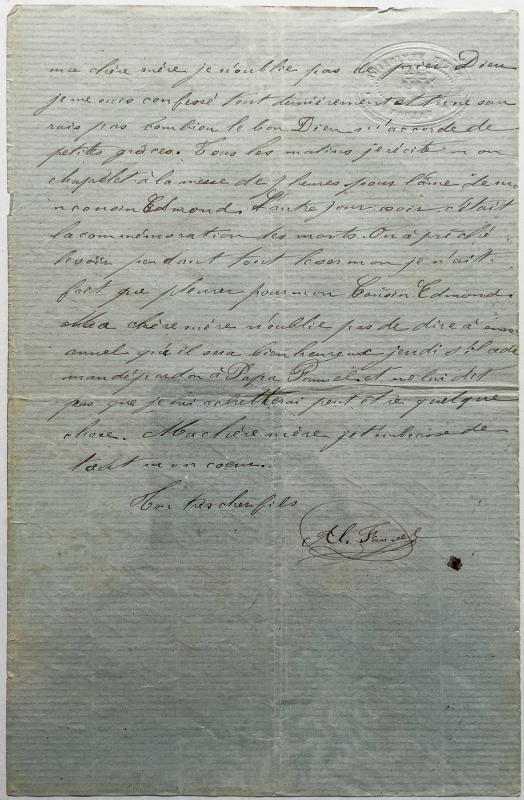 ma chère mère je n'oublie pas de prier Dieu
je me suis confessé tout dernièrement et tu ne sau
rais pas combien le bon Dieu m'accorde de
petites grâces. Tous les matins je récite mon
chapelet à la messe de 7 heures pour l'âme de mo
n cousin Edmond. L'autre jour soir c'était
la commémoration des morts. On a prêché
le soir pendant tout le sermon je n'ait
fait que pleurer pour mon Cousin Edmond.
Ma chère mère n'oublie pas de dire à
anuel qu'il sera bien heureux jeudi s'il a de
mandé pardon à Papa et ne lui dit
pas que je lui achetterai peut être quelque
chose. Ma chère mère je t'embrasse de
tout mon cœur.
Ton très cher fils
Al. Fauvel